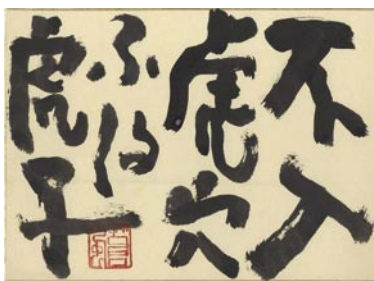 不入
虎穴
不得
虎子